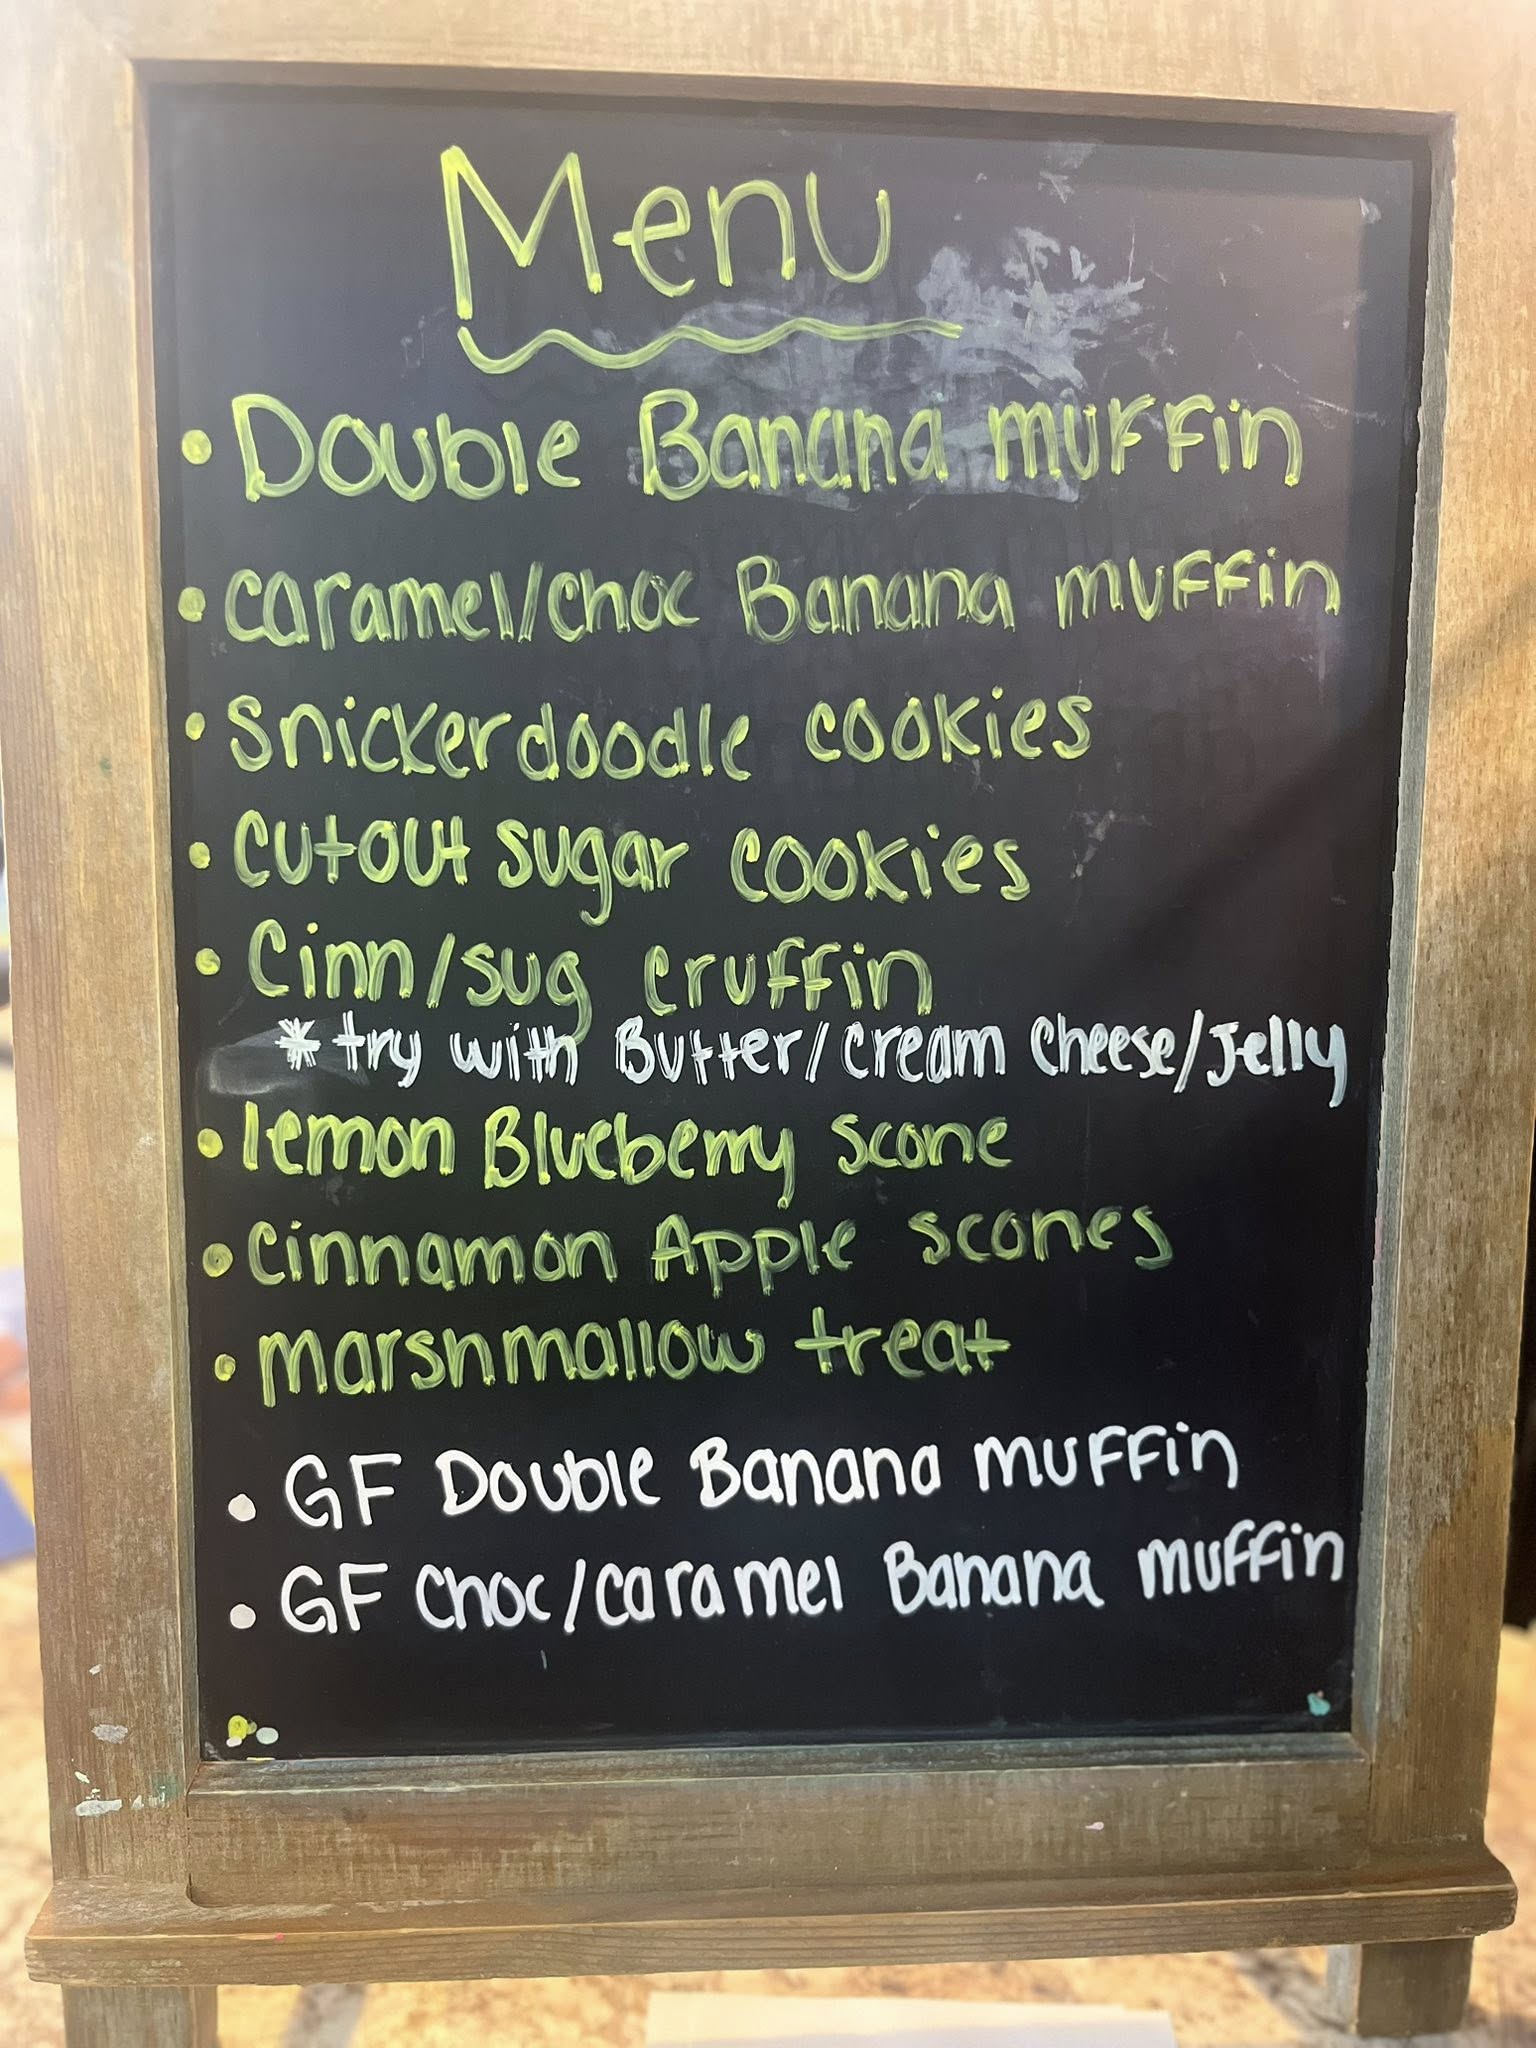 Menu
• Double Banana muffin
• caramel/choc Banana muffin
• Snickerdoodle cookies
• cutout sugar cookies
• Cinn/sug cruffin
* try with Butter/cream cheese/Jelly
• lemon Blueberry scone
• cinnamon Apple scones
• marshmallow treat
• GF Double Banana muffin
• GF choc/caramel Banana muffin